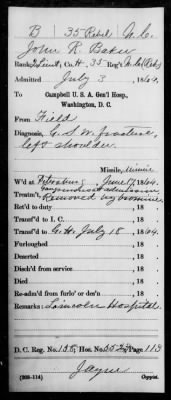 B | 35 Rebel | N.C.
John R. Baker
Rank, Co. H, 35 Reg't N.C. (Reb)
Admitted July 3, 1864.
To
Campbell U. S. A. Gen'l Hosp.,
Washington, D. C.
From Field
Diagnosis, G.S.W. fracture,
left shoulder.
Missile, Minie
W'd at Petersburg June 17, 1864.
Treatm't,
Removed
Ret'd to duty , 18 .
Transf'd to I. C. , 18 .
Transf'd to G.H. July 18, 1864.
Furloughed , 18 .
Deserted , 18 .
Disch'd from service , 18 .
Died , 18 .
Re-adm'd from furlo' or des'n , 18 .
Remarks: Lincoln Hospital.
D. C. Reg. No. 158; Hos. No. Page 113
Jayne
(208–114) Copyist.